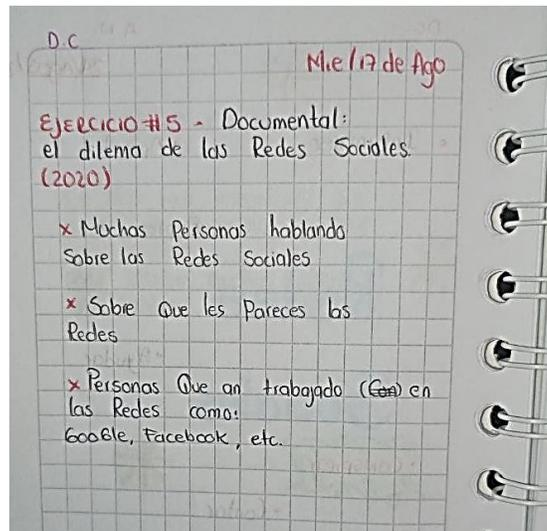 D.C
Mie/17 de Ago
EJERCICIO #5 - Documental:
el dilema de las Redes Sociales.
(2020)
x Muchas Personas hablando
Sobre las Redes Sociales
x Sobre Que les Pareces las
Redes
x Personas Que an trabajado (Con) en
las Redes como:
GooGle, Facebook, etc.